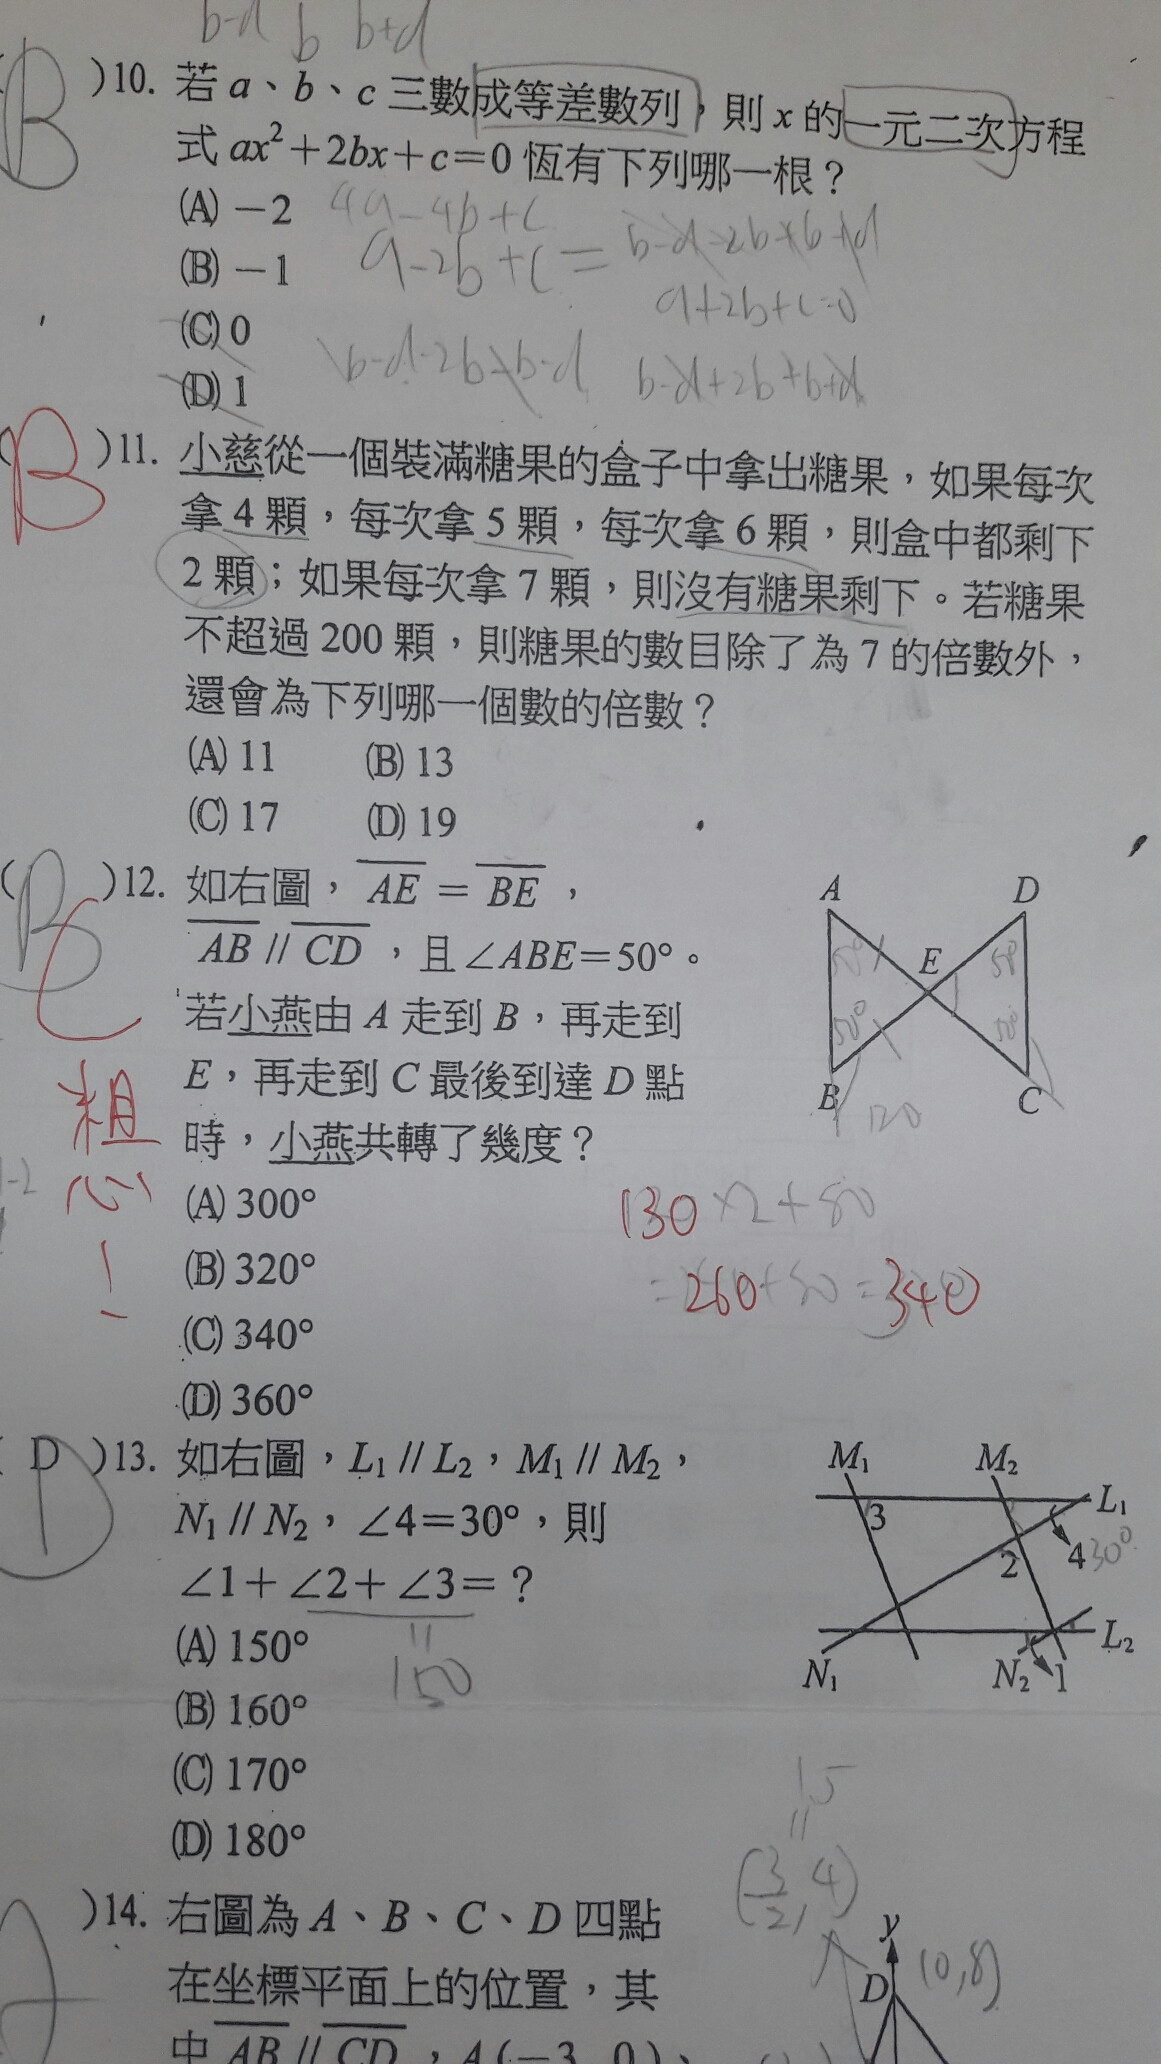 b-d b b+d
B )10. 若 a、b、c 三數成等差數列，則 x 的一元二次方程
式 ax²+2bx+c=0 恆有下列哪一根？
(A) －2 4a-4b+c
(B) －1 a-2b+c= b-d-2b+b+d
a+2b+c=0
(C) 0
b-d-2b+b-d b-d+2b+b+d
(D) 1
( B )11. 小慈從一個裝滿糖果的盒子中拿出糖果，如果每次
拿 4 顆，每次拿 5 顆，每次拿 6 顆，則盒中都剩下
2 顆；如果每次拿 7 顆，則沒有糖果剩下。若糖果
不超過 200 顆，則糖果的數目除了為 7 的倍數外，
還會為下列哪一個數的倍數？
(A) 11 (B) 13
(C) 17 (D) 19
( B C )12. 如右圖，AE = BE，
AB // CD，且∠ABE=50°。
若小燕由 A 走到 B，再走到
E，再走到 C 最後到達 D 點
時，小燕共轉了幾度？
(A) 300°
(B) 320°
(C) 340°
(D) 360°
粗
心
!
A D
E
50° 50° 50° 50°
B C
120
130×2+80
=260+80=340
( D )13. 如右圖，L₁ // L₂，M₁ // M₂，
N₁ // N₂，∠4=30°，則
∠1+∠2+∠3=？
(A) 150°
150
(B) 160°
(C) 170°
(D) 180°
M₁ M₂
3 L₁
2 4 30°
L₂
N₁ N₂ 1
)14. 右圖為 A、B、C、D 四點
在坐標平面上的位置，其
中 AB // CD，A(－3, 0)、
15
(3/2, 4)
y
D (0,8)